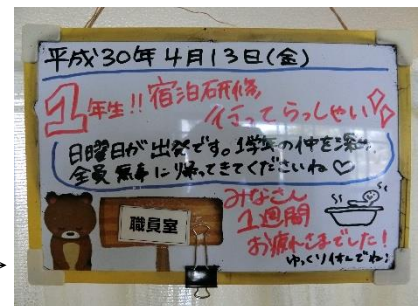 平成30年4月13日(金)
1年生!!宿泊研修
行ってらっしゃい
日曜日が出発です。1学年の仲を深め、
全員無事に帰ってきてくださいね♡
みなさん
1週間
お疲れさまでした!
ゆっくり休んでね♪
職員室